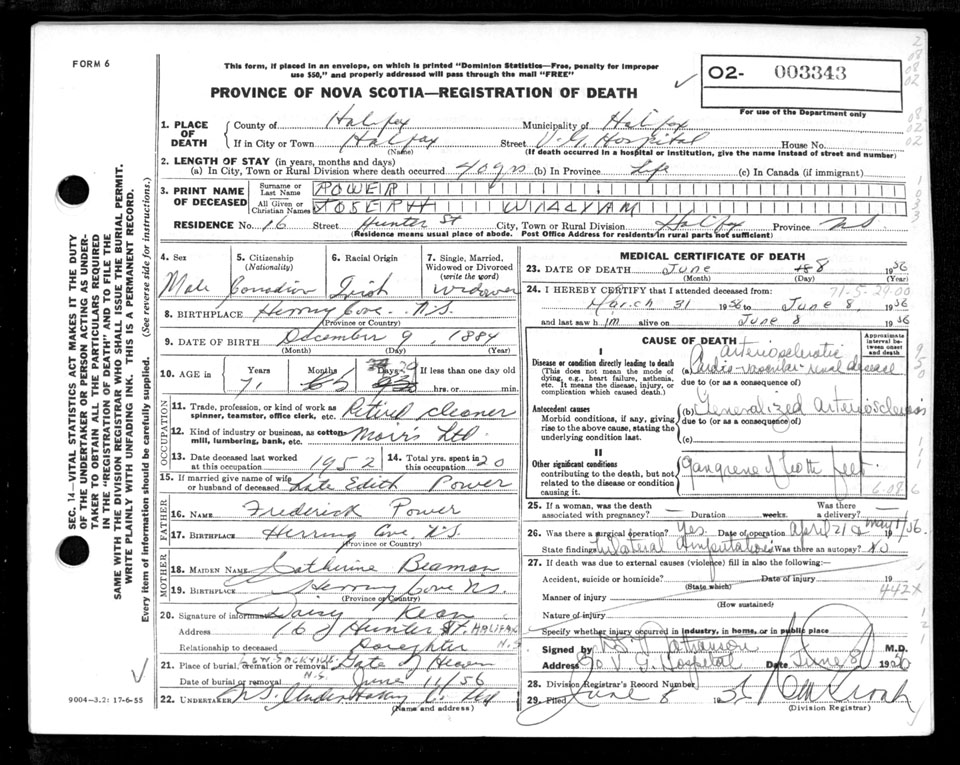 FORM 6
This form, if placed in an envelope, on which is printed "Dominion Statistics—Free, penalty for improper
use $50," and properly addressed will pass through the mail "FREE"
02- 003343
For use of the Department only
PROVINCE OF NOVA SCOTIA—REGISTRATION OF DEATH
1. PLACE OF DEATH County of Halifax Municipality of Halifax
If in City or Town Halifax (Name) Street V.G. Hospital House No.
(If death occurred in a hospital or institution, give the name instead of street and number)
2. LENGTH OF STAY (in years, months and days)
(a) In City, Town or Rural Division where death occurred 40 yrs (b) In Province Life (c) In Canada (if immigrant)
3. PRINT NAME OF DECEASED Surname or Last Name POWER
All Given or Christian Names JOSEPH WILLIAM
RESIDENCE No. 16 Street Hunter St City, Town or Rural Division Halifax Province NS
(Residence means usual place of abode. Post Office Address for residents in rural parts not sufficient)
4. Sex Male
5. Citizenship (Nationality) Canadian
6. Racial Origin Irish
7. Single, Married, Widowed or Divorced (write the word) Widower
8. BIRTHPLACE Herring Cove N.S.
(Province or Country)
9. DATE OF BIRTH December 9, 1884
(Month) (Day) (Year)
10. AGE in Years 71 Months Days If less than one day old
hrs. or min.
OCCUPATION
11. Trade, profession, or kind of work as spinner, teamster, office clerk, etc. Retired cleaner
12. Kind of industry or business, as cotton-mill, lumbering, bank, etc. Moir's Ltd
13. Date deceased last worked at this occupation 1952
14. Total yrs. spent in this occupation 20
15. If married give name of wife or husband of deceased Late Edith Power
FATHER
16. NAME Frederick Power
17. BIRTHPLACE Herring Cove N.S.
(Province or Country)
MOTHER
18. MAIDEN NAME Catherine Beaman
19. BIRTHPLACE Herring Cove N.S.
(Province or Country)
20. Signature of informant Daisy Kean
Address 16 Hunter ST. HALIFAX N.S.
Relationship to deceased Daughter
21. Place of burial, cremation or removal LOW. SACKVILLE N.S. Gate of Heaven
Date of burial or removal June 11/56
22. UNDERTAKER N.S. Undertaking Co. Ltd
(Name and address)
MEDICAL CERTIFICATE OF DEATH
23. DATE OF DEATH June 8 1956
(Month) (Day) (Year)
24. I HEREBY CERTIFY that I attended deceased from:
71-5-29-00
March 31 1956 to June 8, 1956
and last saw him alive on June 8 1956
CAUSE OF DEATH
Approximate interval between onset and death
I
Disease or condition directly leading to death
(This does not mean the mode of dying, e.g., heart failure, asthenia, etc. It means the disease, injury, or complication which caused death.)
(a) Arteriosclerotic Cardio-vascular-renal disease
due to (or as a consequence of)
Antecedent causes
Morbid conditions, if any, giving rise to the above cause, stating the underlying condition last.
(b) Generalized Arteriosclerosis
due to (or as a consequence of)
(c)
II
Other significant conditions
contributing to the death, but not related to the disease or condition causing it.
Gangrene of both feet
25. If a woman, was the death associated with pregnancy? — Duration weeks. Was there a delivery? —
26. Was there a surgical operation? Yes. Date of operation April 21 & May 1/56.
State findings bilateral Amputations Was there an autopsy? No
27. If death was due to external causes (violence) fill in also the following:—
Accident, suicide or homicide? (State which) Date of injury 19
442X
Manner of injury
(How sustained)
Nature of injury
Specify whether injury occurred in industry, in home, or in public place
Signed by M.D.
Address V.G. Hospital Date June 8 1956
28. Division Registrar's Record Number
29. Filed June 8 1956
(Division Registrar)
SEC. 14—VITAL STATISTICS ACT MAKES IT THE DUTY
OF THE UNDERTAKER OR PERSON ACTING AS UNDER-
TAKER TO OBTAIN ALL THE PARTICULARS REQUIRED
IN THE "REGISTRATION OF DEATH" AND TO FILE THE
SAME WITH THE DIVISION REGISTRAR WHO SHALL ISSUE THE BURIAL PERMIT.
WRITE PLAINLY WITH UNFADING INK. THIS IS A PERMANENT RECORD.
Every item of information should be carefully supplied. (See reverse side for instructions.)
9004-3.2: 17-6-55